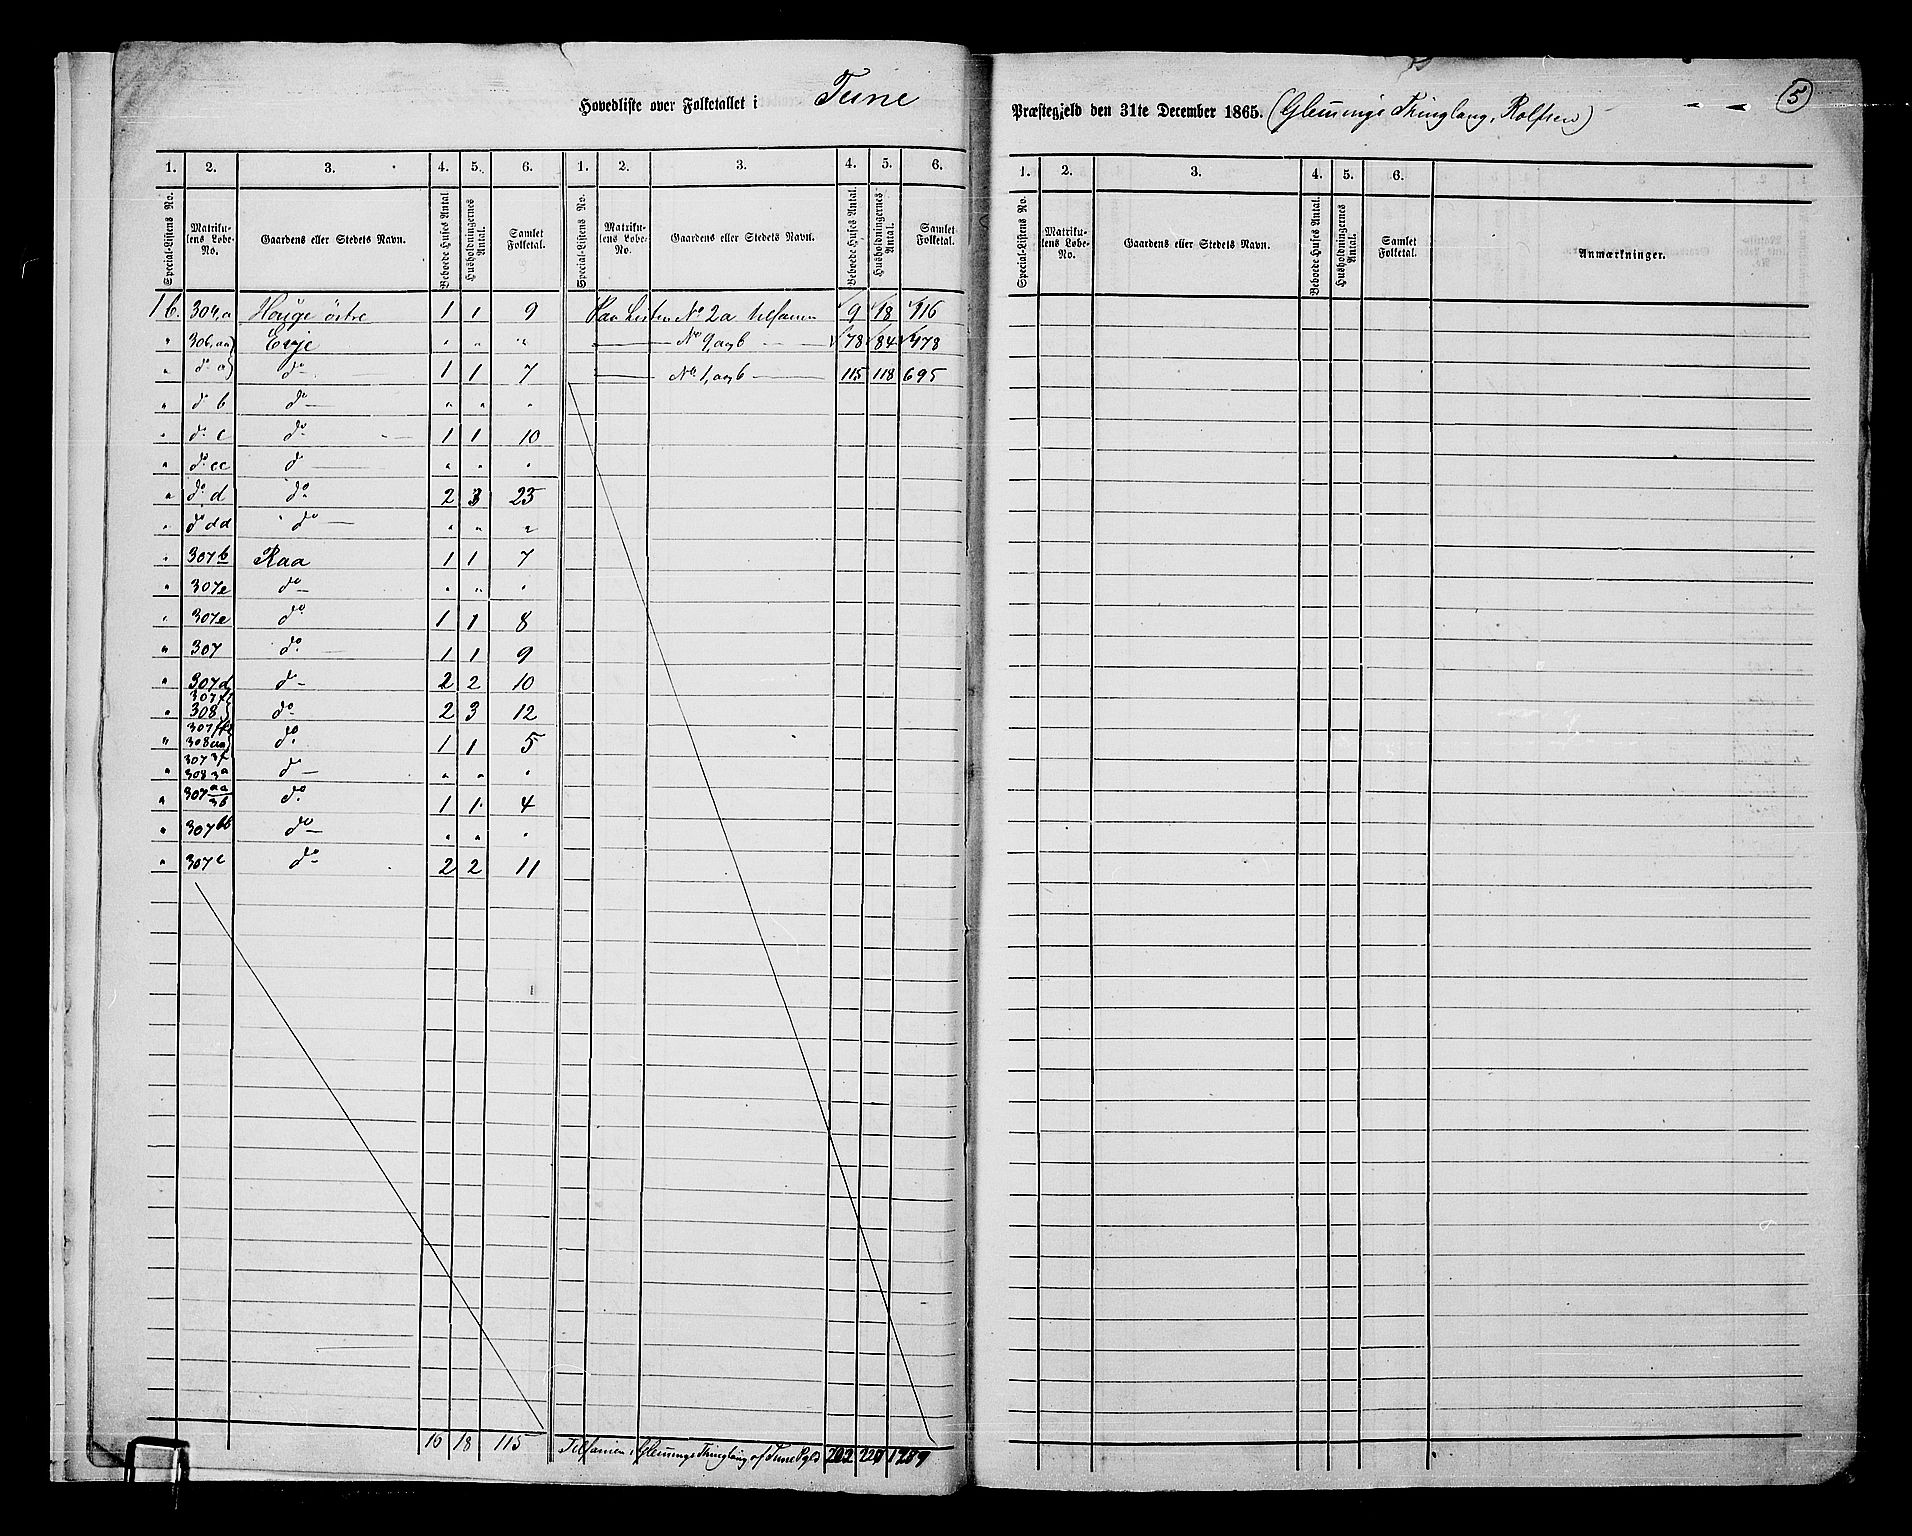 Hovedliste over Folketallet i Tune
Præstegjeld den 31te December 1865. (Glemminge Thinglaug, Rolfsen)
5
1. 2. 3. 4. 5. 6. 1. 2. 3. 4. 5. 6.
1. 2. 3. 4. 5. 6.
Special-Listens No. Matrikulens Løbe-No. Gaardens eller Stedets Navn. Beboede Huses Antal Husholdningernes Antal. Samlet Folketal. Special-Listens No. Matrikulens Løbe-No. Gaardens eller Stedets Navn. Beboede Huses Antal. Husholdningernes Antal. Samlet Folketal.
Special-Listens No. Matrikulens Løbe-No. Gaardens eller Stedets Navn. Beboede Huses Antal. Husholdningernes Antal. Samlet Folketal. Anmærkninger.
1 b. 304,a Houge östre 1 1 9
" 306,aa Evje " " "
" do a do 1 1 7
" do b do — " " "
" do c do — 1 1 10
" do cc do — " " "
" do d do 2 3 23
" do dd do — " " "
" 307b Raa 1 1 7
" 307e do — " " "
" 307e do 1 1 8
" 307 do — 1 1 9
" 307d do — 2 2 10
" 308 do 2 3 12
" 308aa do 1 1 5
" 307 3f
308 3a do — " " "
" 307 aa/3b do 1 1 4
" 307bb do — " " "
" 307c do 2 2 11
16 18 115
Paa Listen No 2a tilsammen 9 18 116
— No 9, a og b — 78 84 478
— No 1, a og b — 115 118 695
Tilsammen i Glemminge Thinglaug af Tune Pgld 202 220 1289